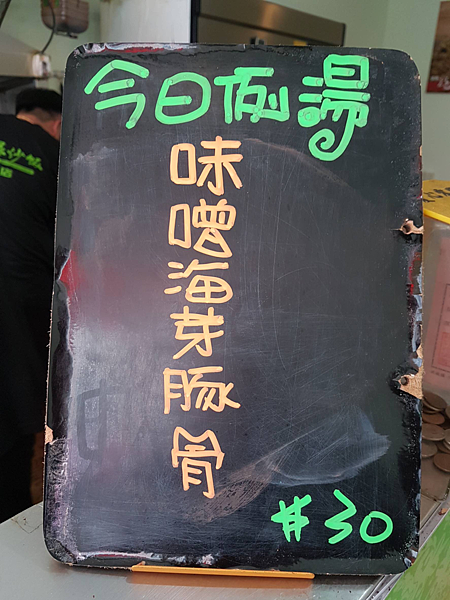 今日例湯
味噌海芽豚骨
#30